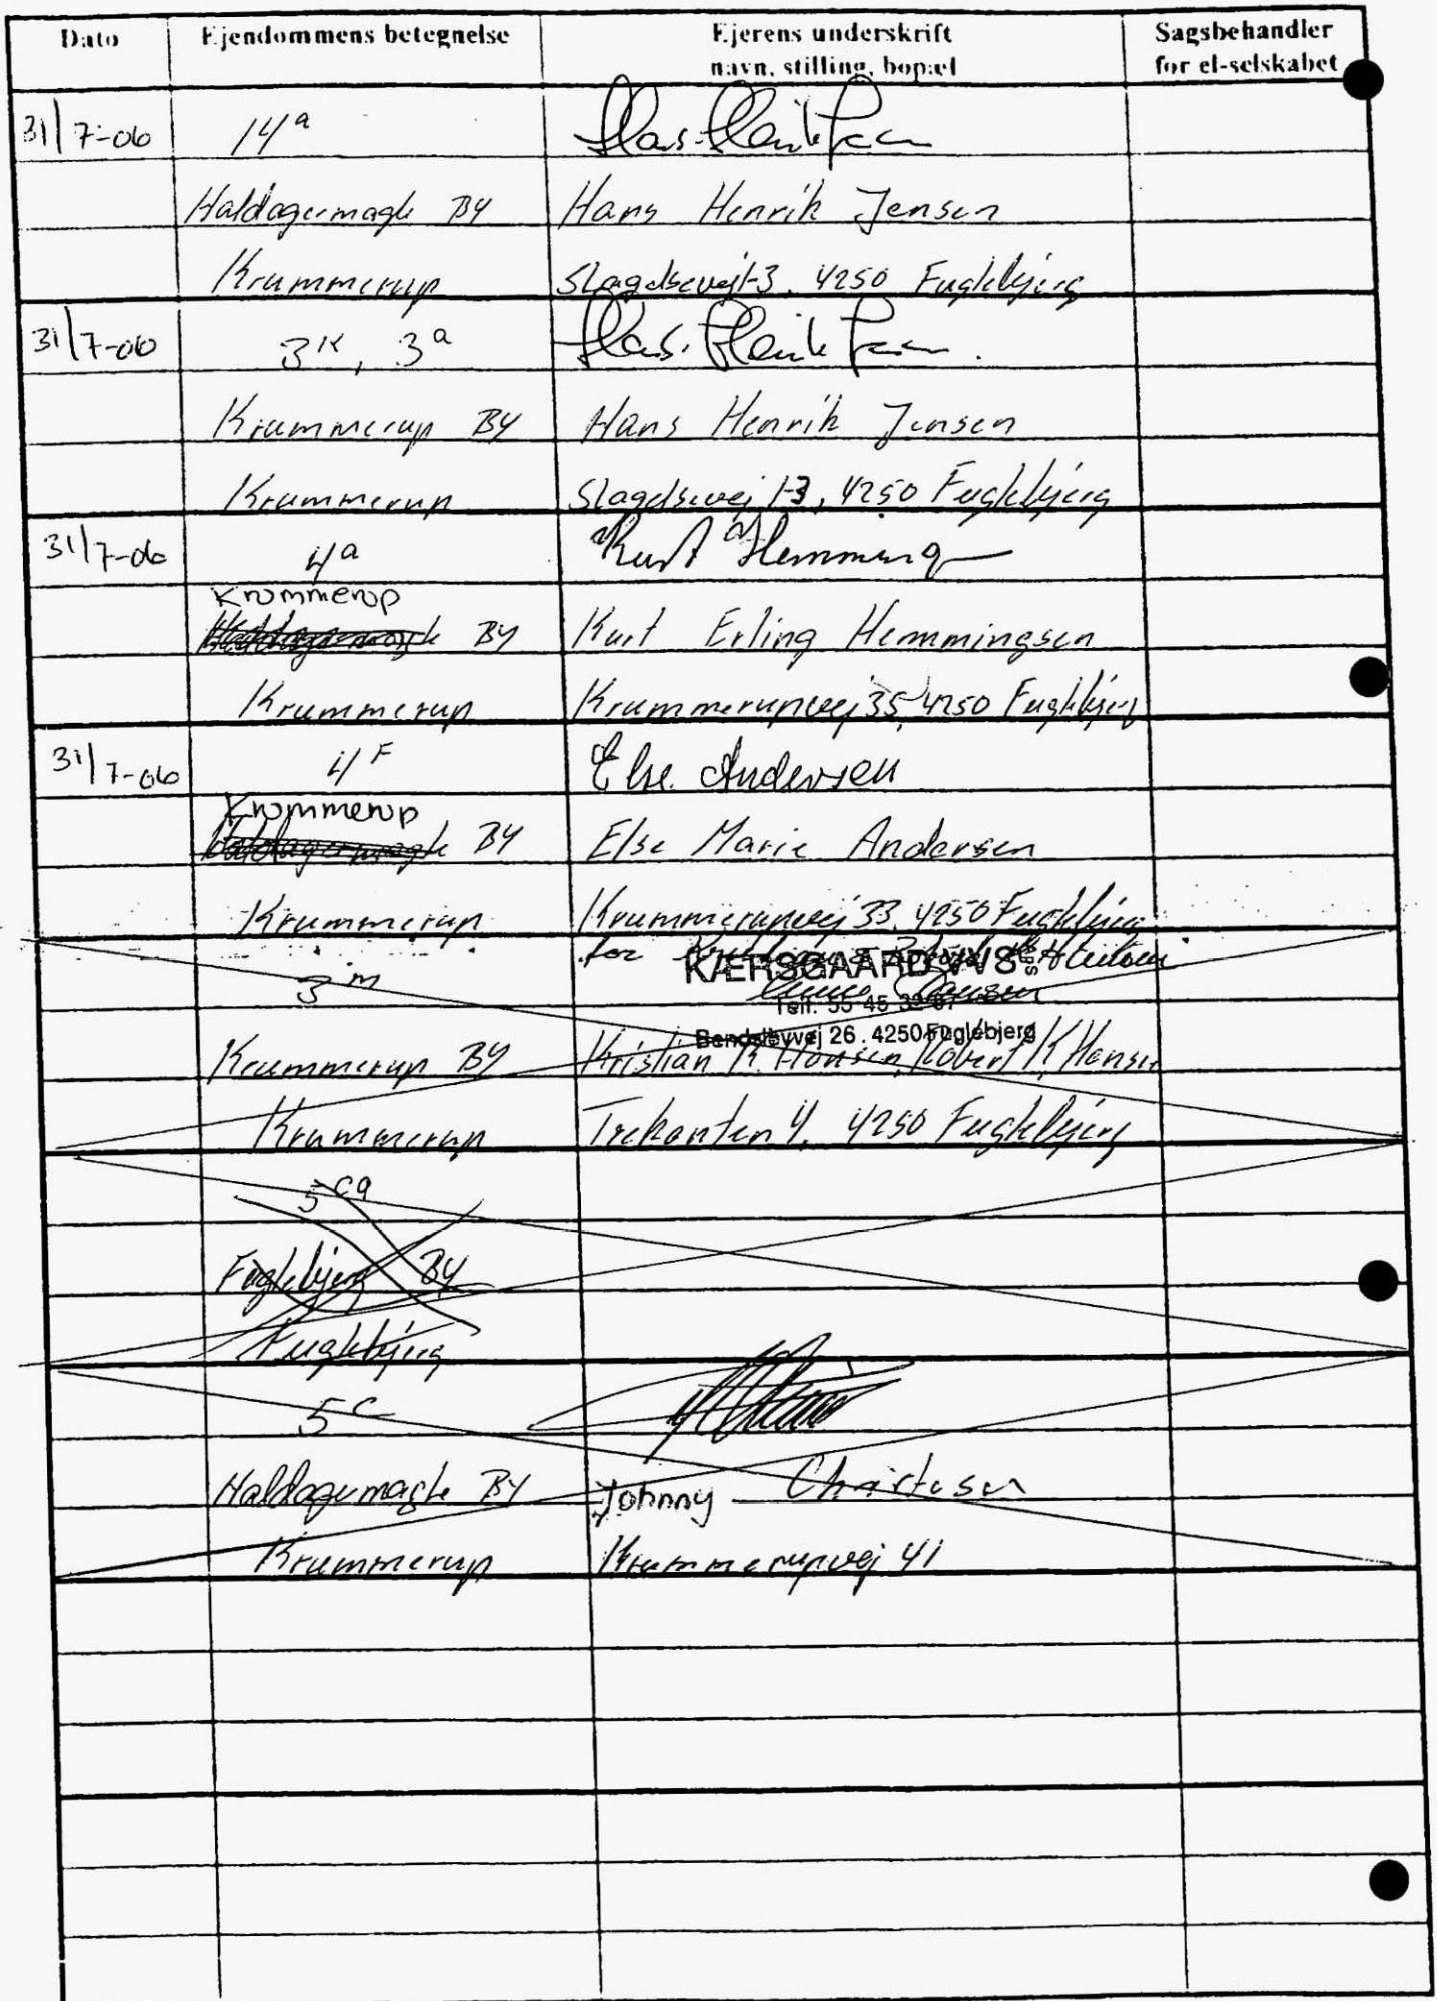 Dato Ejendommens betegnelse Ejerens underskrift Sagsbehandler
navn, stilling, bopæl for el-selskabet
31/7-06 14a
Haldagermagle By Hans Henrik Jensen
Krummerup Slagelsevej 1-3, 4250 Fuglebjerg
31/7-06 3k, 3a
Krummerup By Hans Henrik Jensen
Krummerup Slagelsevej 1-3, 4250 Fuglebjerg
31/7-06 4a Kurt Hemming
Krummerup
Haldagermagle By Kurt Erling Hemmingsen
Krummerup Krummerupvej 35, 4250 Fuglebjerg
31/7-06 4F Else Andersen
Krummerup
Haldagermagle By Else Marie Andersen
Krummerup Krummerupvej 33, 4250 Fuglebjerg
for
KÆRSGAARD VVS
3m
Telf. 55 45 32 67
Bendslevvej 26 . 4250 Fuglebjerg
Krummerup By Kristian K. Hansen, Robert K. Hansen
Krummerup Trekanten 4, 4250 Fuglebjerg
5ca
Fuglebjerg By
Fuglebjerg
5c
Haldagermagle By Johnny Christensen
Krummerup Krummerupvej 41